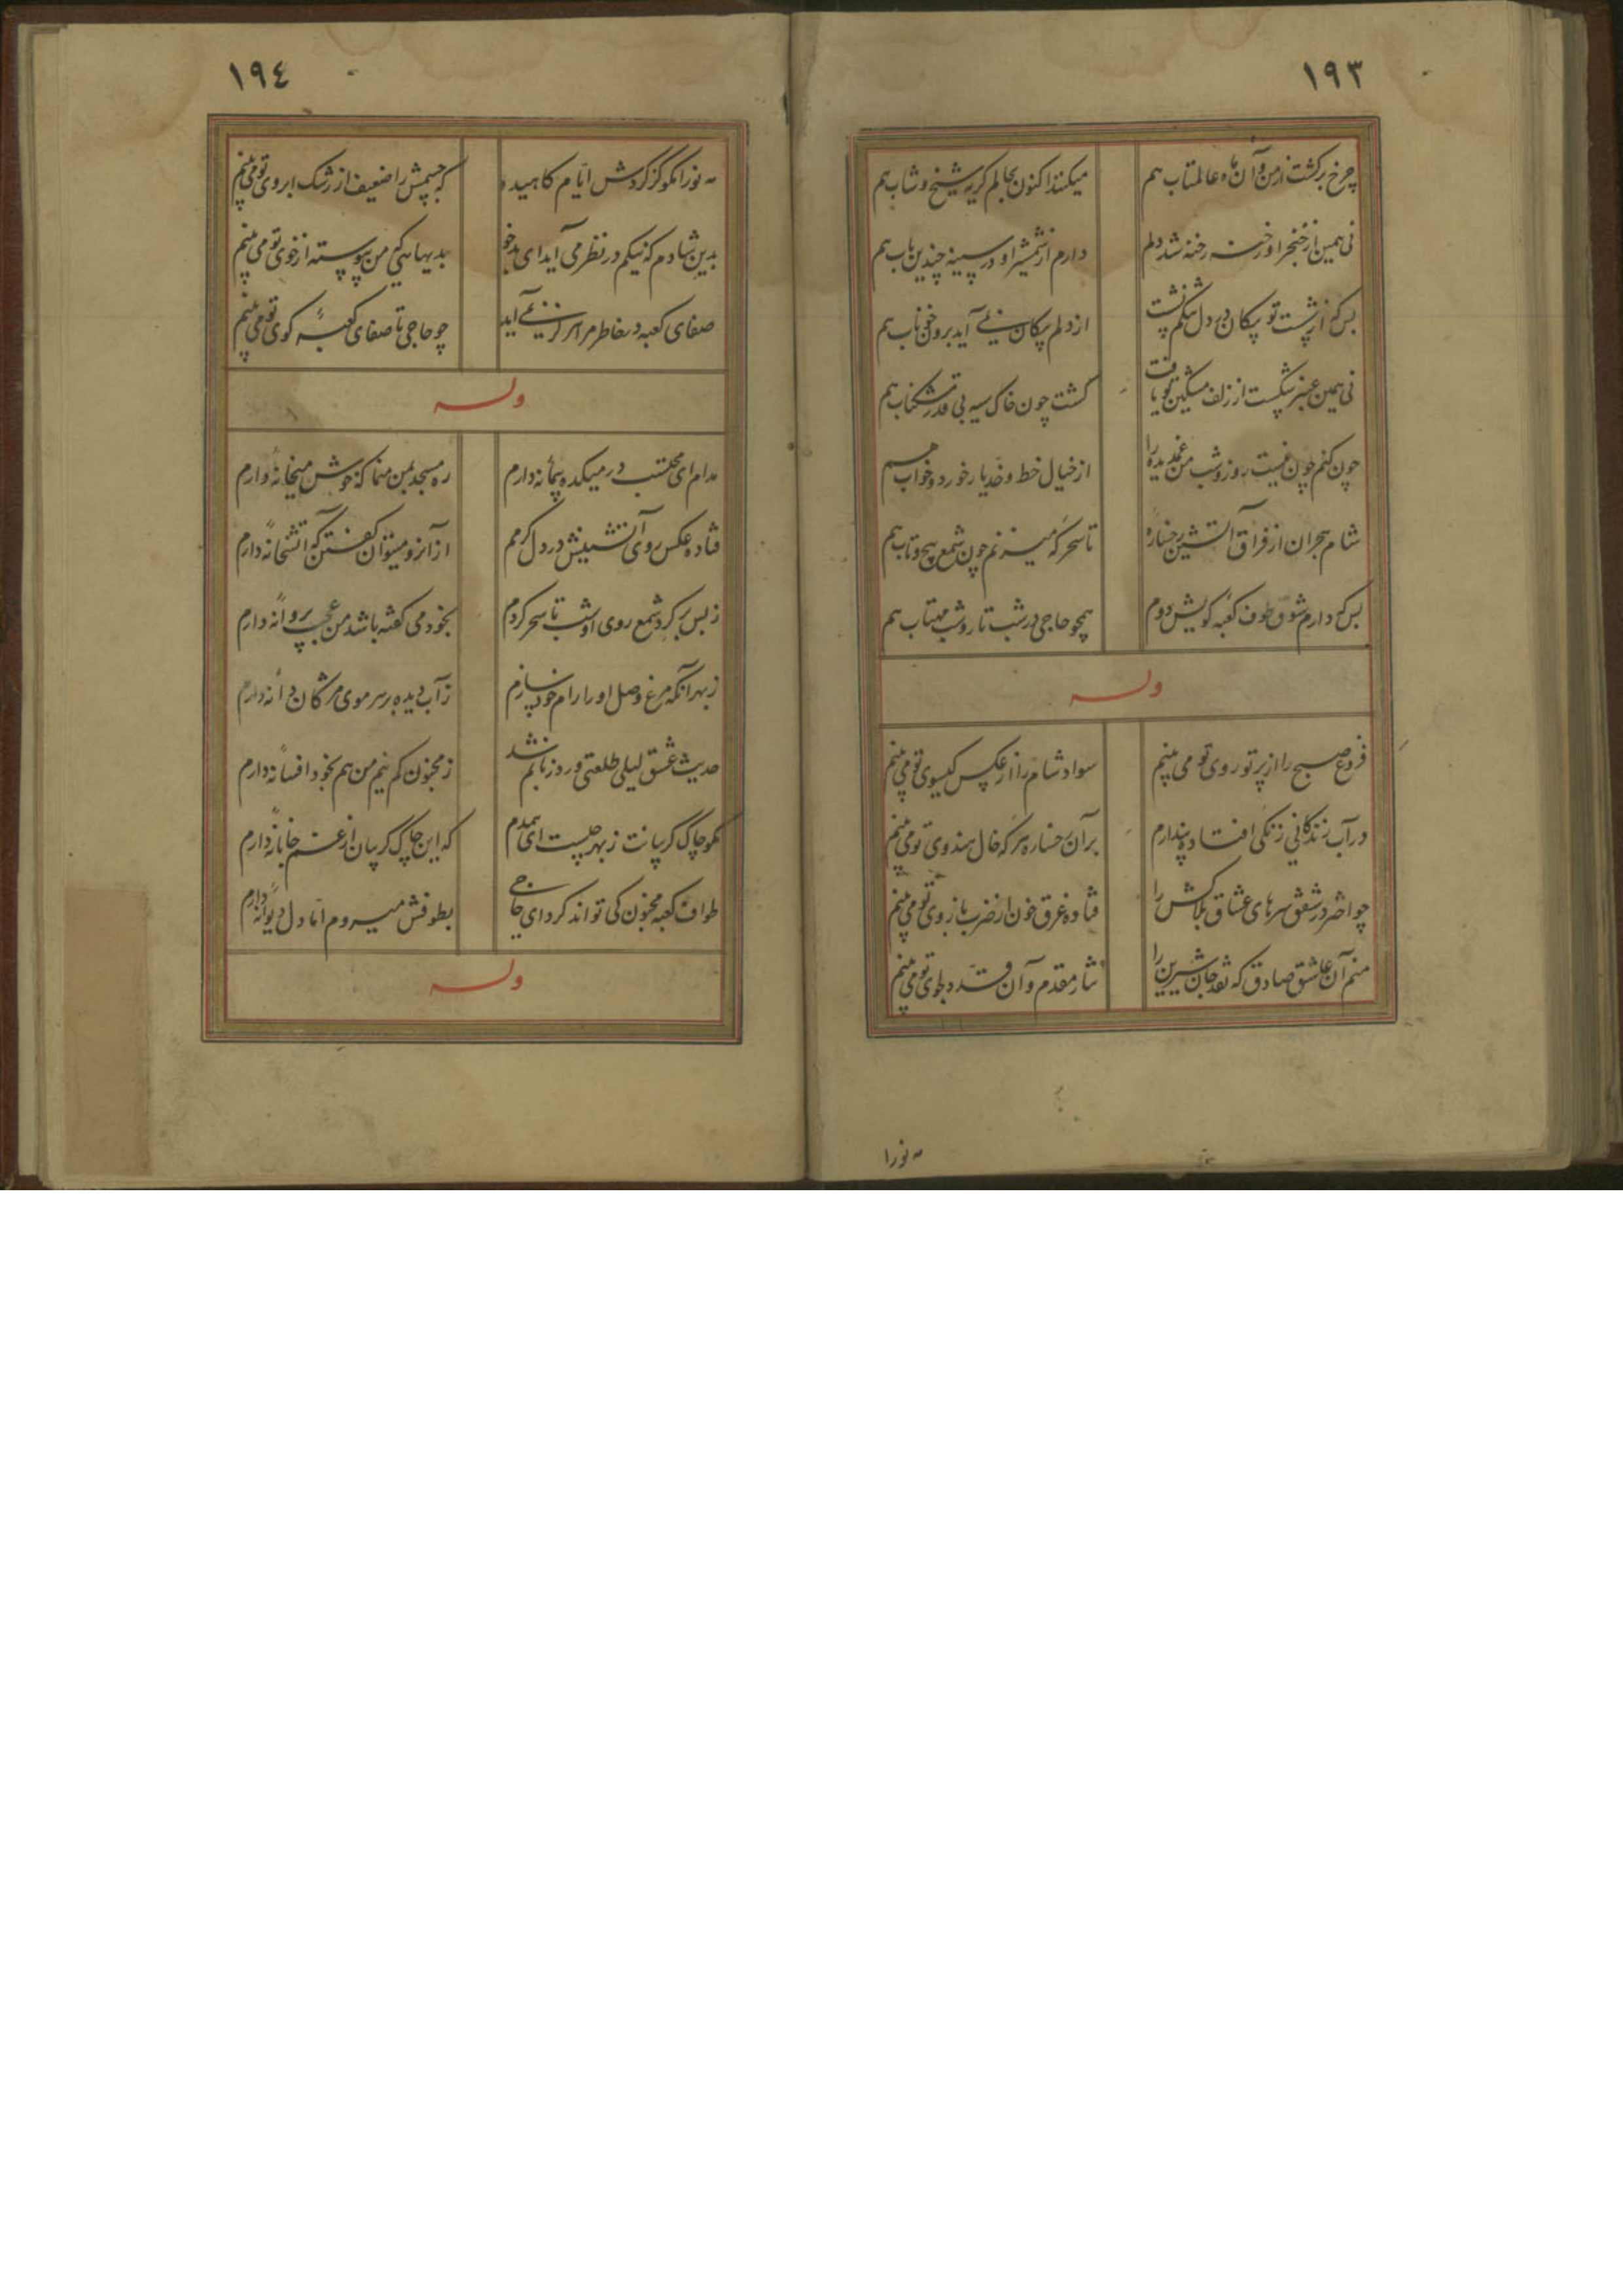 ١٩٣
چرخ برگشت از من و آن ماه عالمتاب هم
میکند اکنون بحالم گریه شیخ و شاب هم
نی همین از خنجر او رخنه رخنه شد دلم
دارم از شمشیر او در سینه چندین باب هم
بس که از شست تو پیکان در دل تنگم نشست
از دلم پیکان نمی آید برون خوناب هم
نی همین عنبر شکست از زلف مشکین تو یافت
گشت چون خاک سیه بی قدر مشکناب هم
چون کنم چون نیست روز و شب من غمدیده را
از خیال خط و خد یار خورد و خواب هم
شام هجران از فراق آتشین رخساره
تا سحرگه میزنم چون شمع پیچ و تاب هم
بس که دارم شوق طوف کعبه کویش دوم
همچو حاجی در شب تار و شب مهتاب هم
وله
فروغ صبح را از پرتو روی تو می بینم
سواد شام را از عکس گیسوی تو می بینم
در آب زندگانی زنگی افتاده پندارم
بر آن رخساره هر گه خال هندوی تو می بینم
چو اختر در شفق سرهای عشاق بلاکش را
فتاده غرق خون از ضرب بازوی تو می بینم
منم آن عاشق صادق که نقد جان شیرین را
نثار مقدم و آن قد دلجوی تو می بینم
مه نو را
١٩٤
مه نو را مگو کز گردش ایام کاهیده
که جسمش را ضعیف از رشک ابروی تو می بینم
بدین شادم که نیکم در نظر می آید ای بدخو
بدیهائی که من پیوسته از خوی تو می بینم
صفای کعبه در خاطر مرا هرگز نمی آید
چو حاجی تا صفای کعبه کوی تو می بینم
وله
مدام ای محتسب در میکده پیمانه دارم
ره مسجد بمن منما که خوش میخانه دارم
فتاده عکس روی آتشینش در دل گرمم
از آنرو میتوان گفتن که آتشخانه دارم
ز بس بر گرد شمع روی او شب تا سحر گردم
بخود می گفته باشد من عجب پروانه دارم
ز بهر آنکه مرغ وصل او را رام خود سازم
ز آب دیده بر سر موی مژگان دانه دارم
حدیث عشق لیلی طلعتی ورد زبانم شد
ز مجنون کم نیم من هم بخود افسانه دارم
مگو چاک گریبانت ز بهر چیست ای همدم
که این چاک گریبان از غم جانانه دارم
طواف کعبه مجنون کی تواند کرد ای حاجی
بطوفش میروم اما دل دیوانه دارم
وله